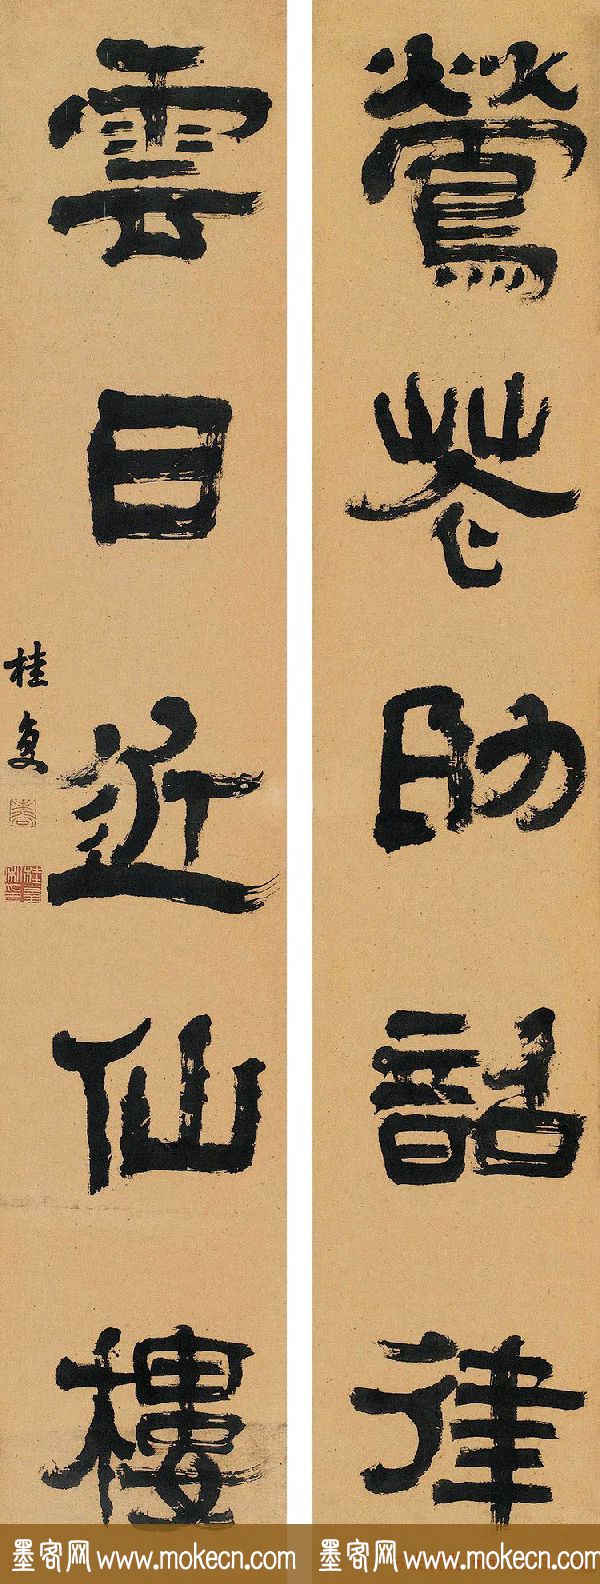 鶯花助韶律
雲日近仙樓
桂复
墨客网 www.mokecn.com
墨客网 www.mokecn.com